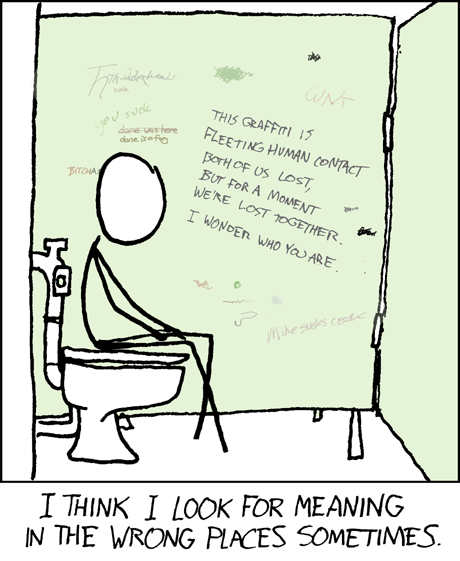 suck
you suck
dane was here
BITCHA
THIS GRAFFITI IS
FLEETING HUMAN CONTACT
BOTH OF US LOST,
BUT FOR A MOMENT
WE'RE LOST TOGETHER.
I WONDER WHO YOU ARE.
Mike sucks cock
I THINK I LOOK FOR MEANING
IN THE WRONG PLACES SOMETIMES.